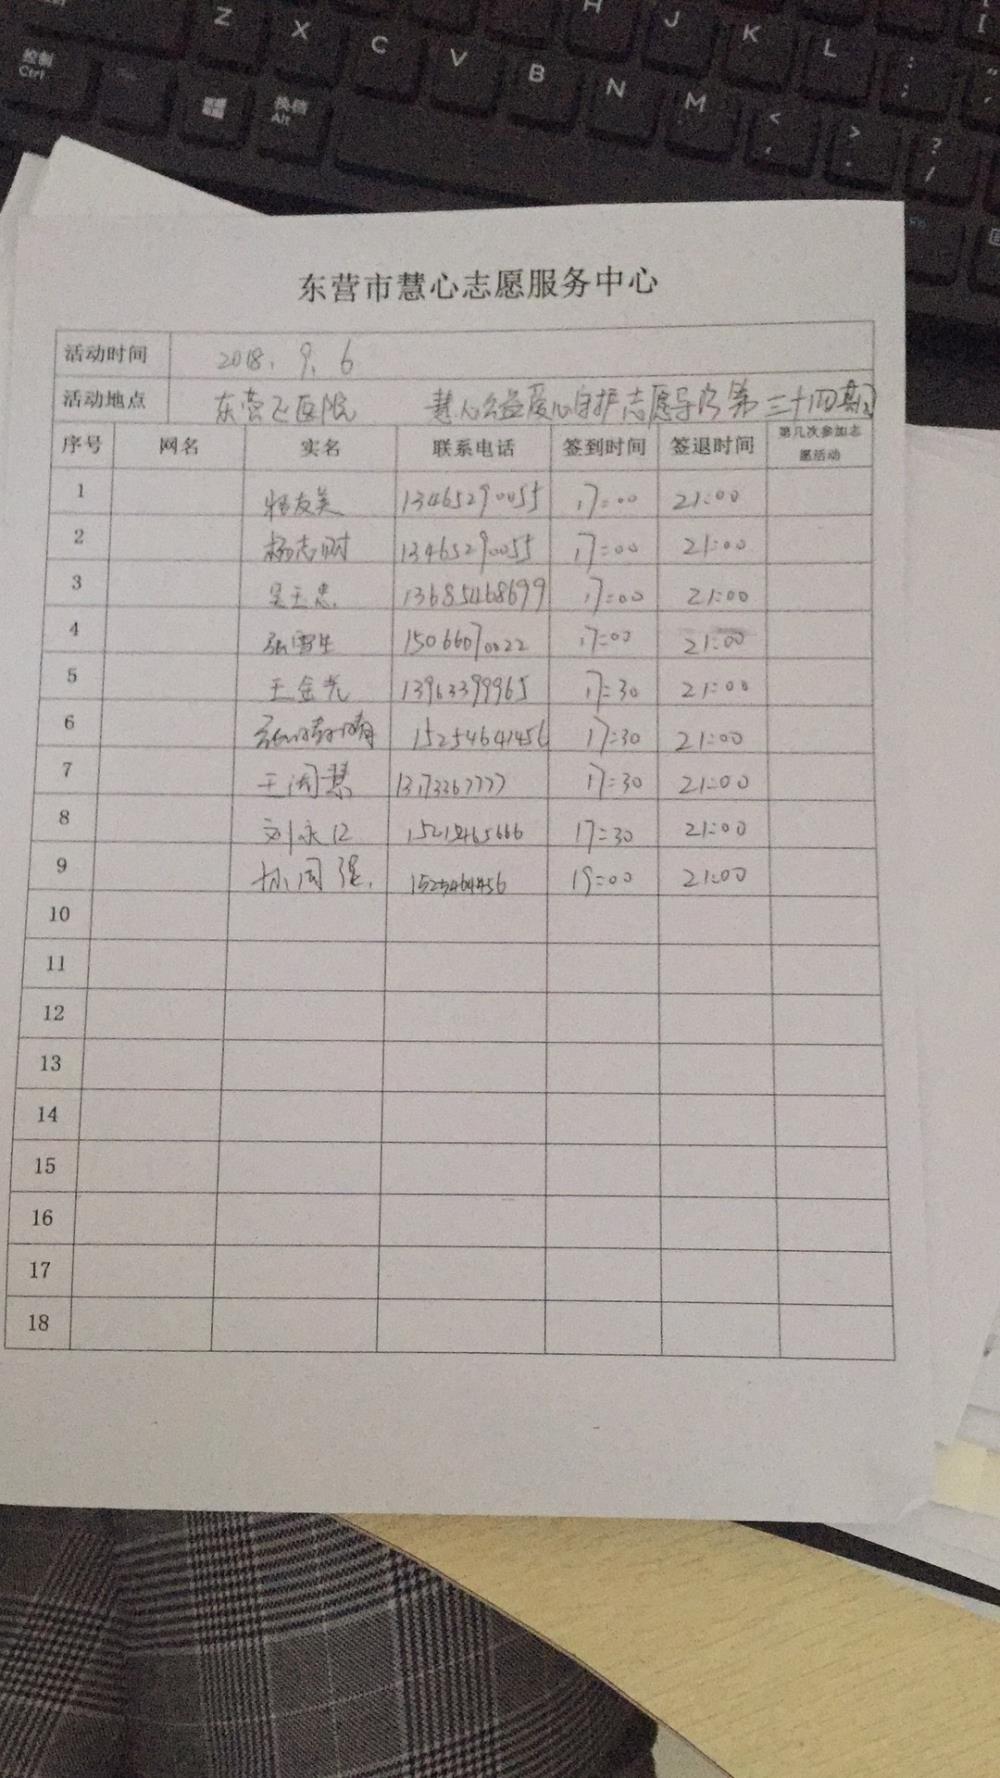 Z X C V B N M H J K L
控制
Ctrl
换档
Alt
< , > . ? / : ;
东营市慧心志愿服务中心
活动时间 2018. 9. 6
活动地点 东营 医院 慧心公益爱心守护志愿 第三十四期
序号 网名 实名 联系电话 签到时间 签退时间 第几次参加志愿活动
1 友美 13465290055 17:00 21:00
2 杨志 13465290055 17:00 21:00
3 吴玉忠 13685468699 17:00 21:00
4 张雪生 15066070022 17:00 21:00
5 王金光 13963399965 17:30 21:00
6 15254641456 17:30 21:00
7 王闰慧 13173267777 17:30 21:00
8 刘永江 17:30 21:00
9 孙国强. 19:00 21:00
10
11
12
13
14
15
16
17
18